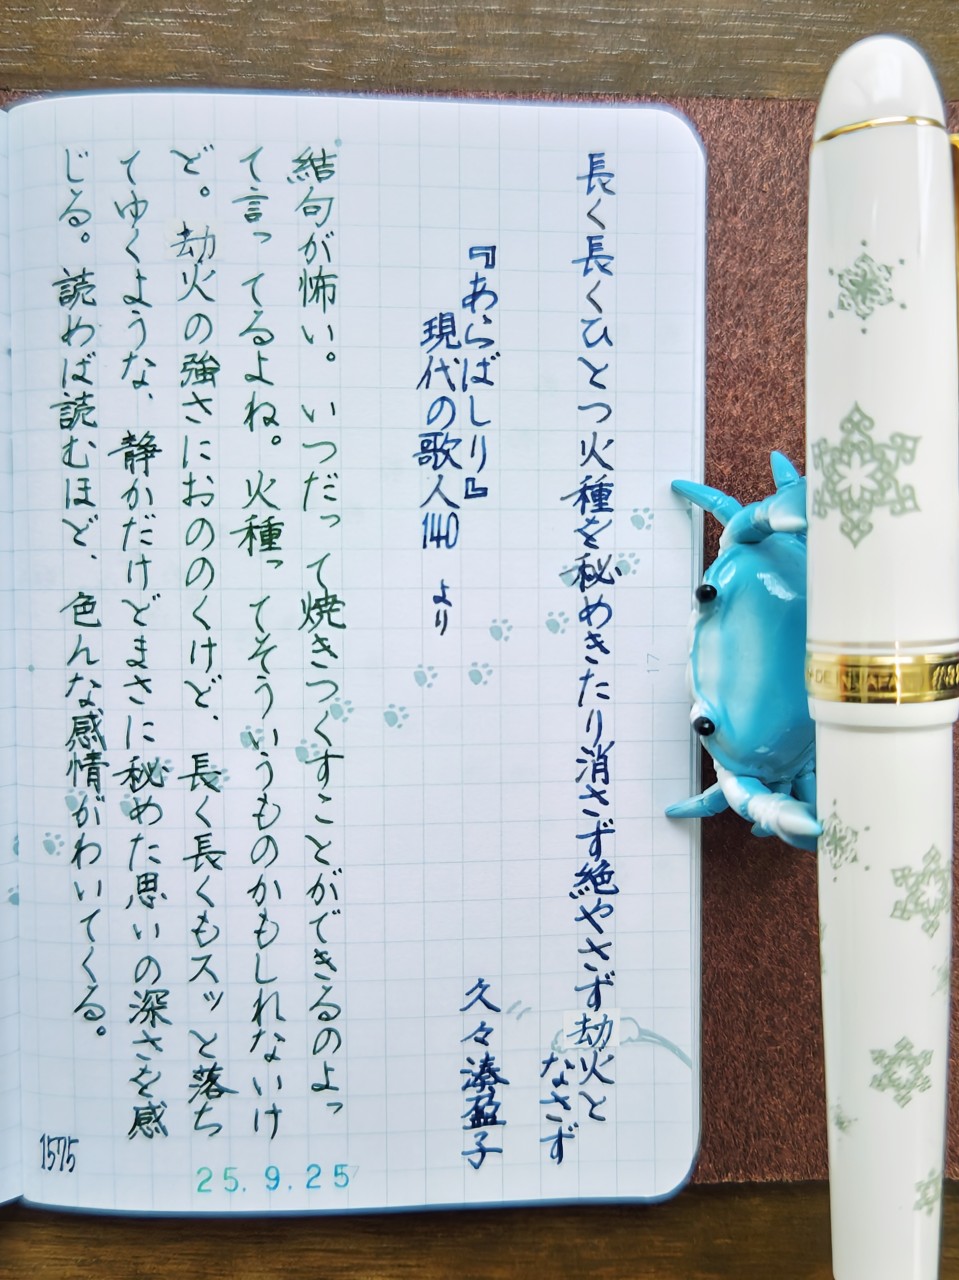 長く長くひとつ火種を秘めきたり消さず絶やさず劫火と
なさず
『あらばしり』
現代の歌人140 より
久々湊盈子
結句が怖い。いつだって焼きつくすことができるのよっ
て言ってるよね。火種ってそういうものかもしれないけ
ど。劫火の強さにおののくけど、長く長くもスッと落ち
てゆくような、静かだけどまさに秘めた思いの深さを感
じる。読めば読むほど、色んな感情がわいてくる。
1575
25.9.25
17